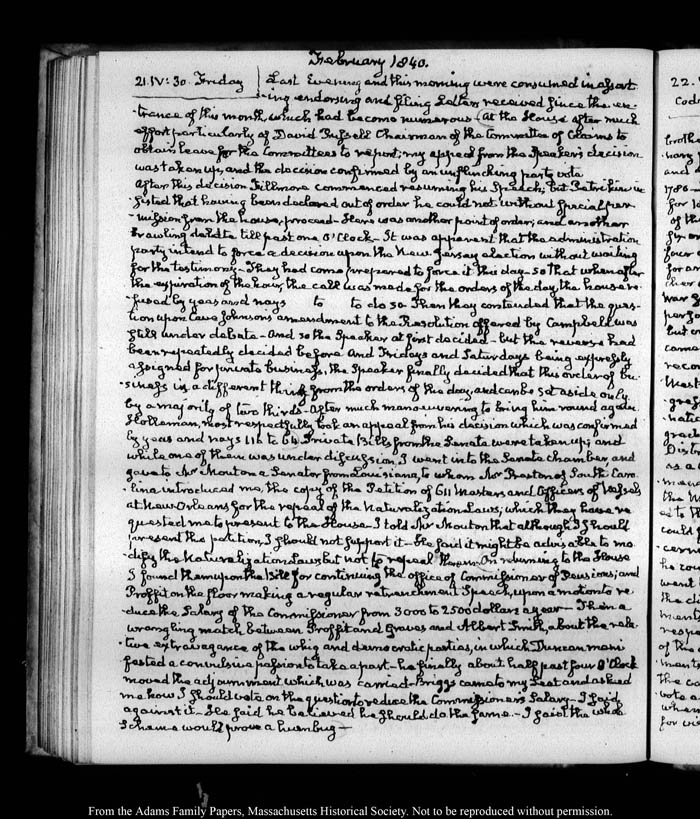 February 1840.
21. IV: 30. Friday
Last Evening and this morning were consumed in assort
-ing endorsing and filing Letters received since the en-
-trance of this month, which had become numerous - At the House after much
effort particularly of David Russell Chairman of the Committee of Claims to
obtain leave for the Committees to report; my appeal from the Speaker's decision
was taken up, and the decision confirmed by an unflinching party vote
After this decision Fillmore commenced resuming his Speech; but Petrikin in
-sisted that having been declared out of order he could not without special per
-mission from the house, proceed - Here was another point of order; and another
brawling debate till past one O'Clock - It was apparent that the administration
party intend to force a decision upon the New Jersey election without waiting
for the testimony - They had come prepared to force it this day - so that when after
the expiration of the hour, the call was made for the orders of the day, the house re-
-fused by yeas and nays to to do so. Then they contended that the ques-
tion upon Cave Johnson's amendment to the Resolution offered by Campbell was
still under debate - And so the Speaker at first decided - but the reverse had
been repeatedly decided before And Fridays and Saturdays being expressly
assigned for private business, the Speaker finally decided that this order of bu
-siness is a different thing from the orders of the day, and can be set aside only
by a majority of two thirds - After much manoeuvering to bring him round again
Holleman, most respectfully took an appeal from his decision which was confirmed
by yeas and nays 116 to 64. Private Bills from the Senate were taken up; and
while one of them was under discussion, I went into the Senate chamber, and
gave to Mr Mouton a Senator from Louisiana, to whom Mr Preston of South Caro
-lina introduced me, the copy of the Petition of 611 Masters and Officers of Vessels
at New Orleans for the repeal of the Naturalization Laws; which they have re
quested me to present to the House - I told Mr Mouton that although I should
present the petition, I should not support it - He said it might be advisable to mo
-dify the Naturalization Laws but not to repeal them. On returning to the House
I found them upon the Bill for continuing the office of Commissioner of Pensions; and
Proffit on the floor making a regular retrenchment Speech, upon a motion to re
-duce the Salary of the Commissioner from 3000 to 2500 dollars a year - Then a
wrangling match between Proffit and Graves and Albert Smith, about the rela-
-tive extravagance of the whig and democratic parties, in which Duncan mani
fested a convulsive passion to take a part - he finally about half past four O'Clock
moved the adjournment which was carried - Briggs came to my Seat and asked
me how I should vote on the question to reduce the Commissioner's Salary - I said
against it - He said he believed he should do the same - I said the whole
Scheme would prove a humbug -
22.
From the Adams Family Papers, Massachusetts Historical Society. Not to be reproduced without permission.